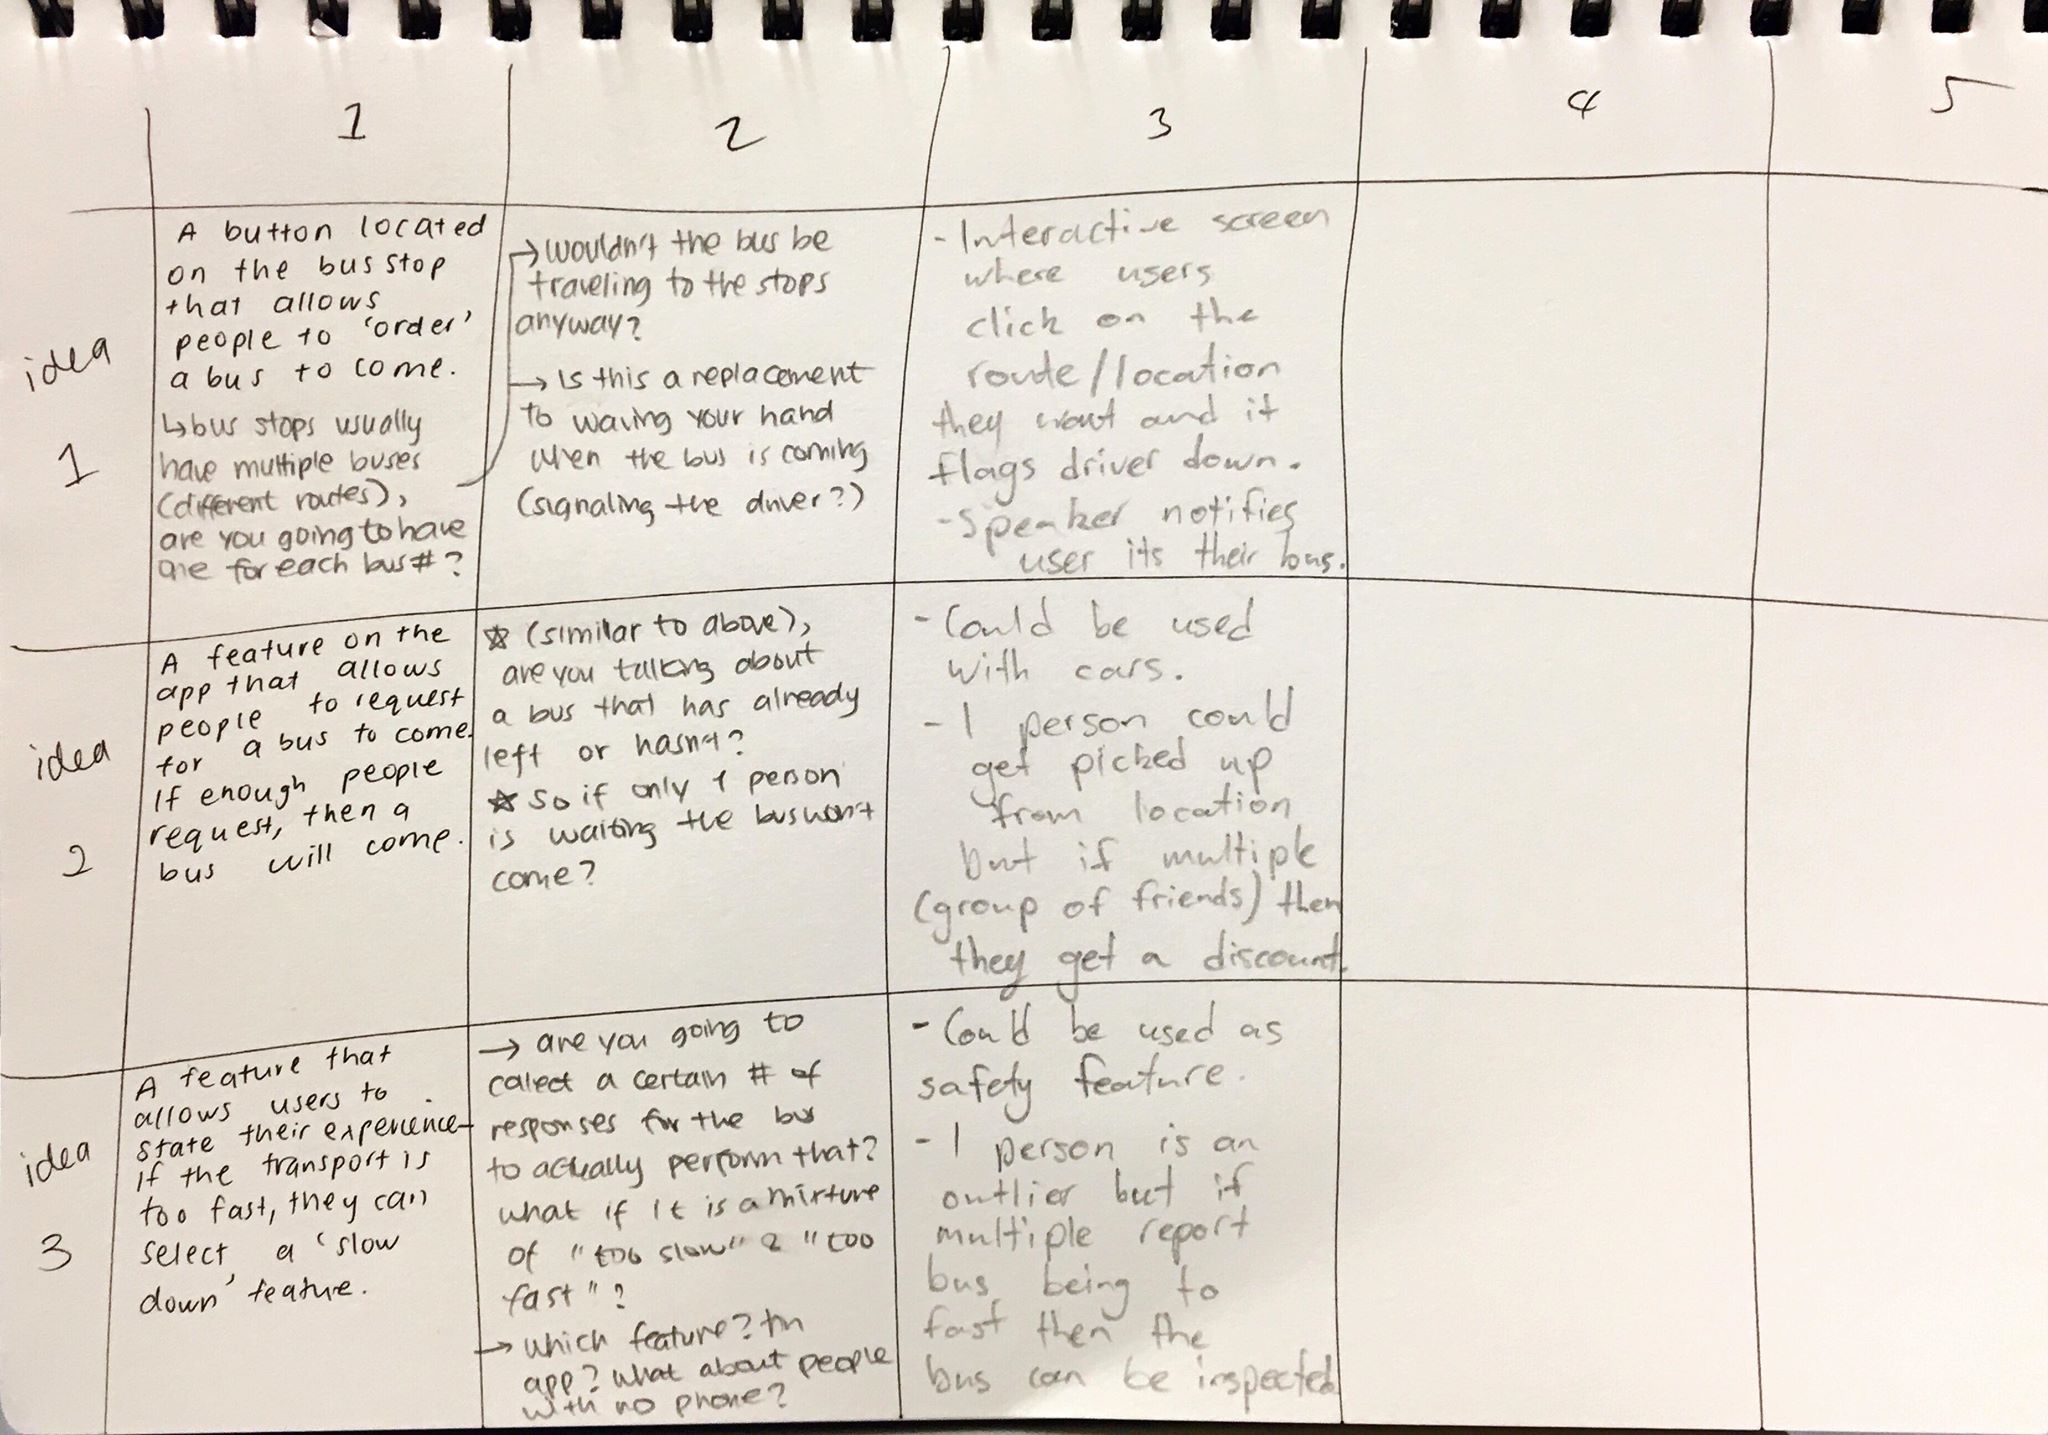 1 2 3 4 5
idea
1
A button located
on the bus stop
that allows
people to 'order'
a bus to come.
↳bus stops usually
have multiple buses
(different routes),
are you going to have
one for each bus #?
→ wouldn't the bus be
traveling to the stops
anyway?
→ Is this a replacement
to waving your hand
when the bus is coming
(signaling the driver?)
- Interactive screen
where users
click on the
route/location
they want and it
flags driver down.
- Speaker notifies
user its their bus.
idea
2
A feature on the
app that allows
people to request
for a bus to come.
If enough people
request, then a
bus will come.
☆ (similar to above),
are you talking about
a bus that has already
left or hasn't?
☆ So if only 1 person
is waiting the bus won't
come?
- Could be used
with cars.
- 1 person could
get picked up
from location
but if multiple
(group of friends) then
they get a discount.
idea
3
A feature that
allows users to
state their experience-
if the transport is
too fast, they can
select a 'slow
down' feature.
→ are you going to
collect a certain # of
responses for the bus
to actually perform that?
what if it is a mixture
of "too slow" & "too
fast"?
→ which feature? An
app? what about people
with no phone?
- Could be used as
safety feature.
- 1 person is an
outlier but if
multiple report
bus being to
fast then the
bus can be inspected